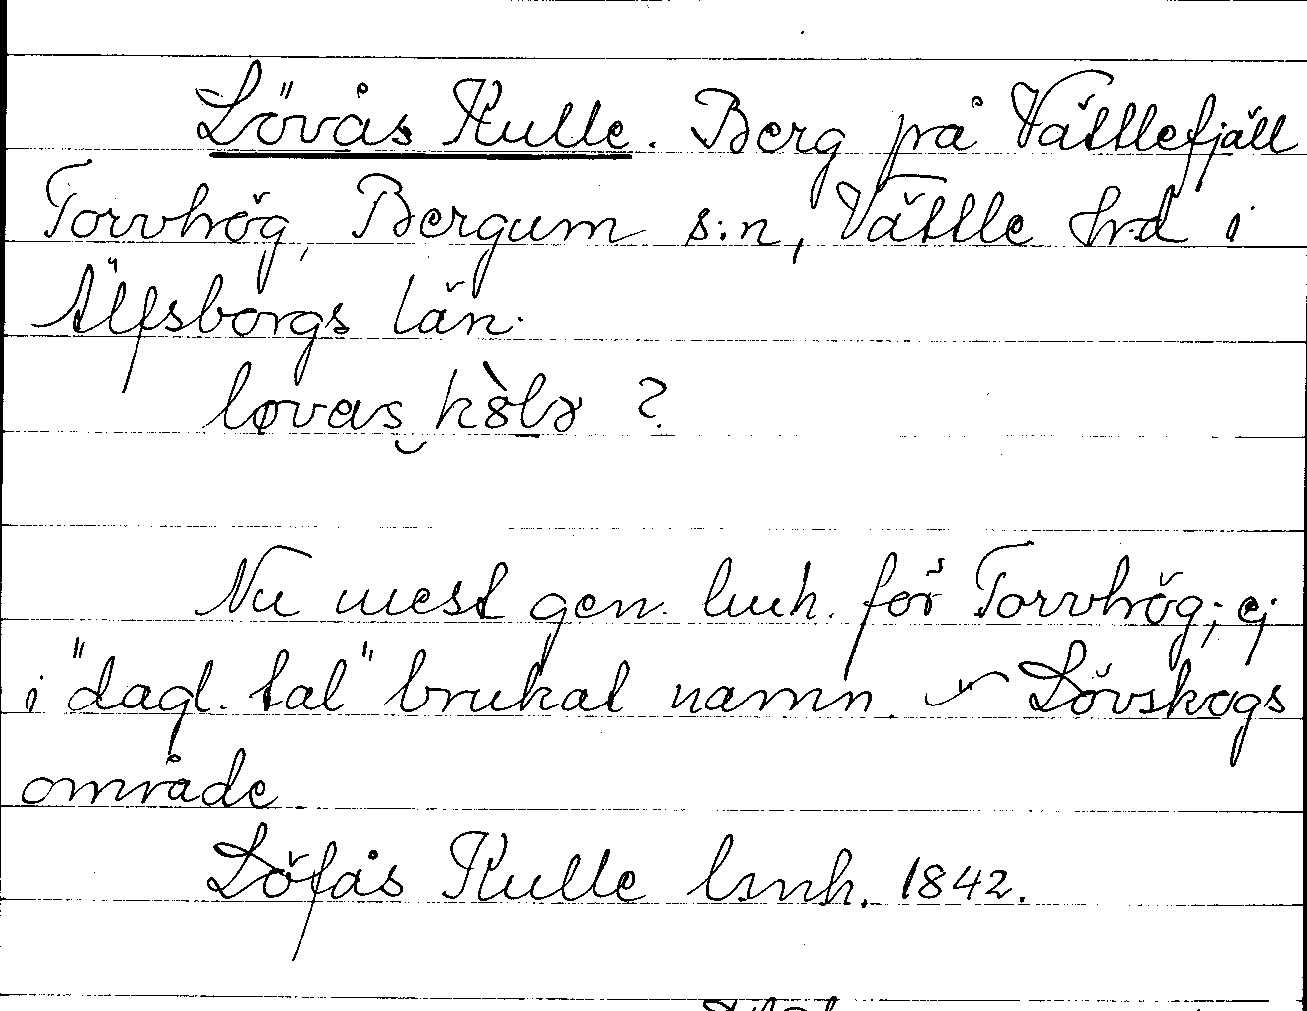 Lövås Kulle. Berg på Vättlefjäll
Torvhög, Bergum s:n, Vättle hrd i
Älfsborgs län.
Nu mest gen. lmk. för Torvhög; ej
i "dagl. tal" brukat namn. Lövskogs
område.
Löfås Kulle lmk. 1842.